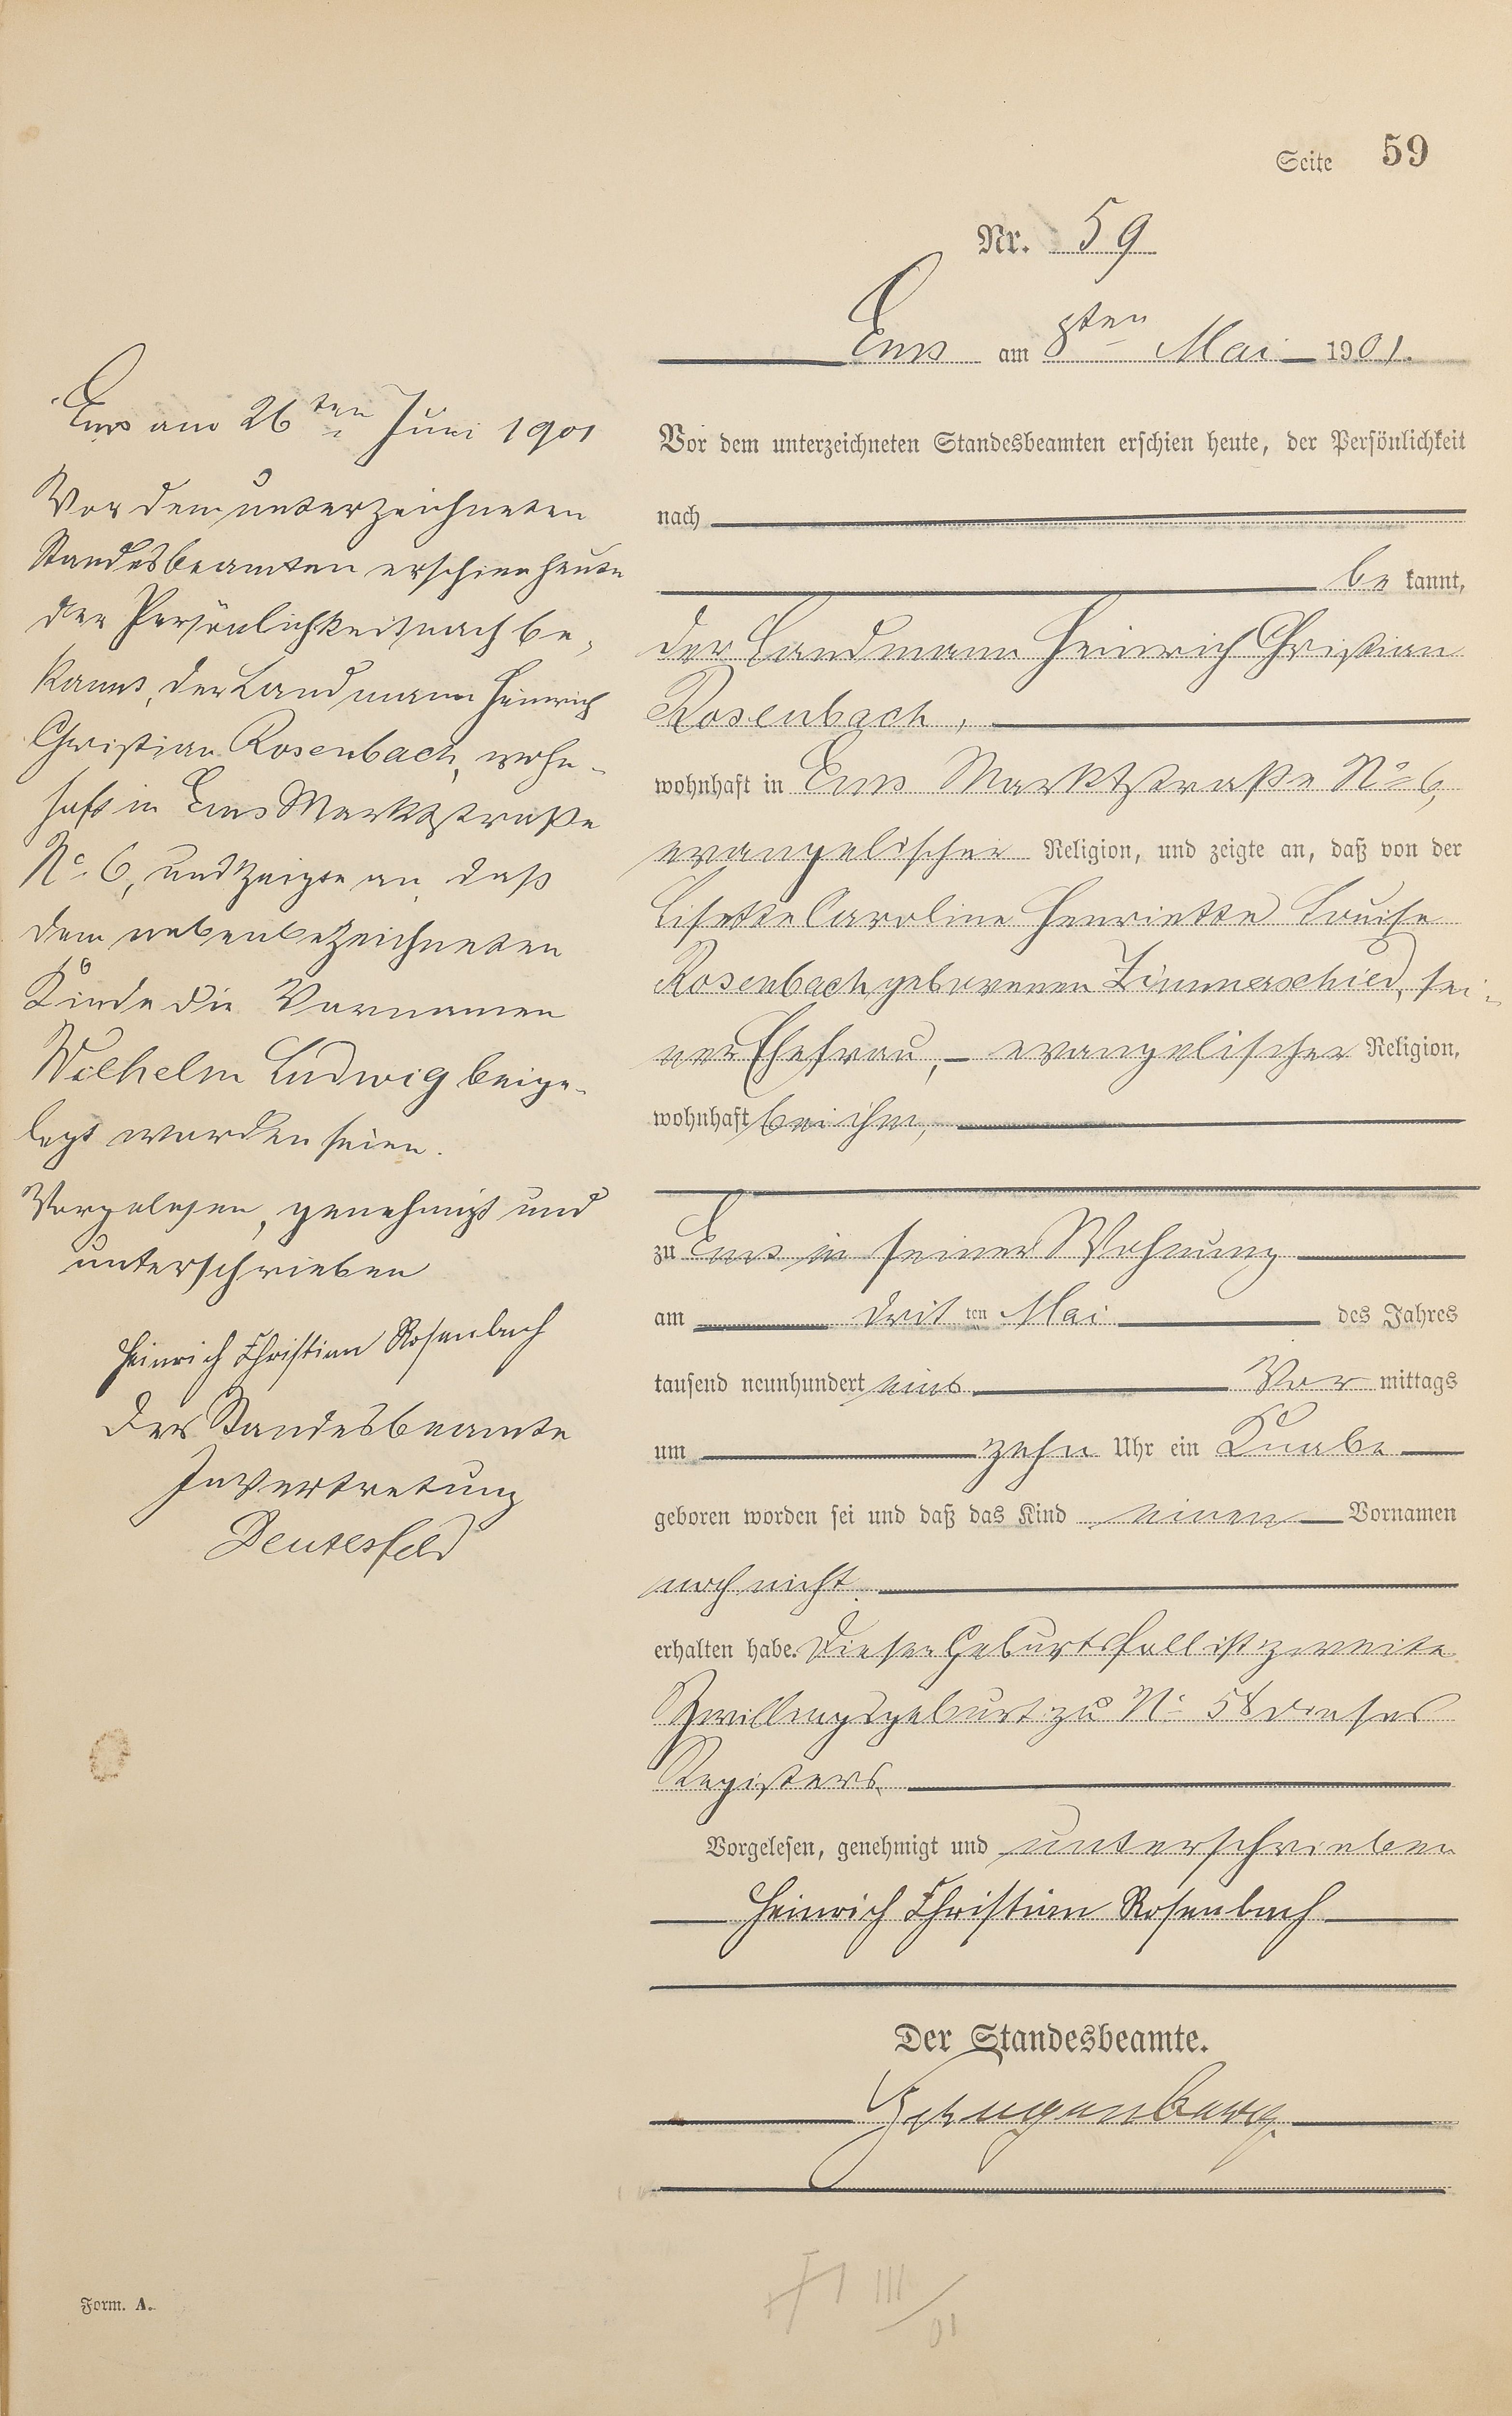 Seite 59
Nr. 59
Ems am 8ten Mai 1901.
Vor dem unterzeichneten Standesbeamten erschien heute, der Persönlichkeit
nach
be kannt,
der Landmann Heinrich Christian
Rosenbach,
wohnhaft in Ems Marktstraße No 6,
evangelischer Religion, und zeigte an, daß von der
Lisette Caroline Henriette Louise
Rosenbach geborenen Zimmerschied, sei-
ner Ehefrau, evangelischer Religion,
wohnhaft bei ihm,
zu Ems in seiner Wohnung
am drit ten Mai des Jahres
tausend neunhundert eins Vor mittags
um zehn Uhr ein Knabe
geboren worden sei und daß das Kind einen Vornamen
noch nicht
erhalten habe. Dieser Geburtsfall ist zweite
Zwillingsgeburt zu No 58 dieses
Registers.
Vorgelesen, genehmigt und unterschrieben
Heinrich Christian Rosenbach
Der Standesbeamte.
Ems am 26ten Juni 1901
Vor dem unterzeichneten
Standesbeamten erschien heute
der Persönlichkeit nach be-
kannt, der Landmann Heinrich
Christian Rosenbach, wohn-
haft in Ems Marktstraße
No 6, und zeigte an, daß
dem nebenbezeichneten
Kinde die Vornamen
Wilhelm Ludwig beige-
legt worden seien.
Vorgelesen, genehmigt und
unterschrieben
Heinrich Christian Rosenbach
Der Standesbeamte
In Vertretung
Deutesfeld
Form. A.